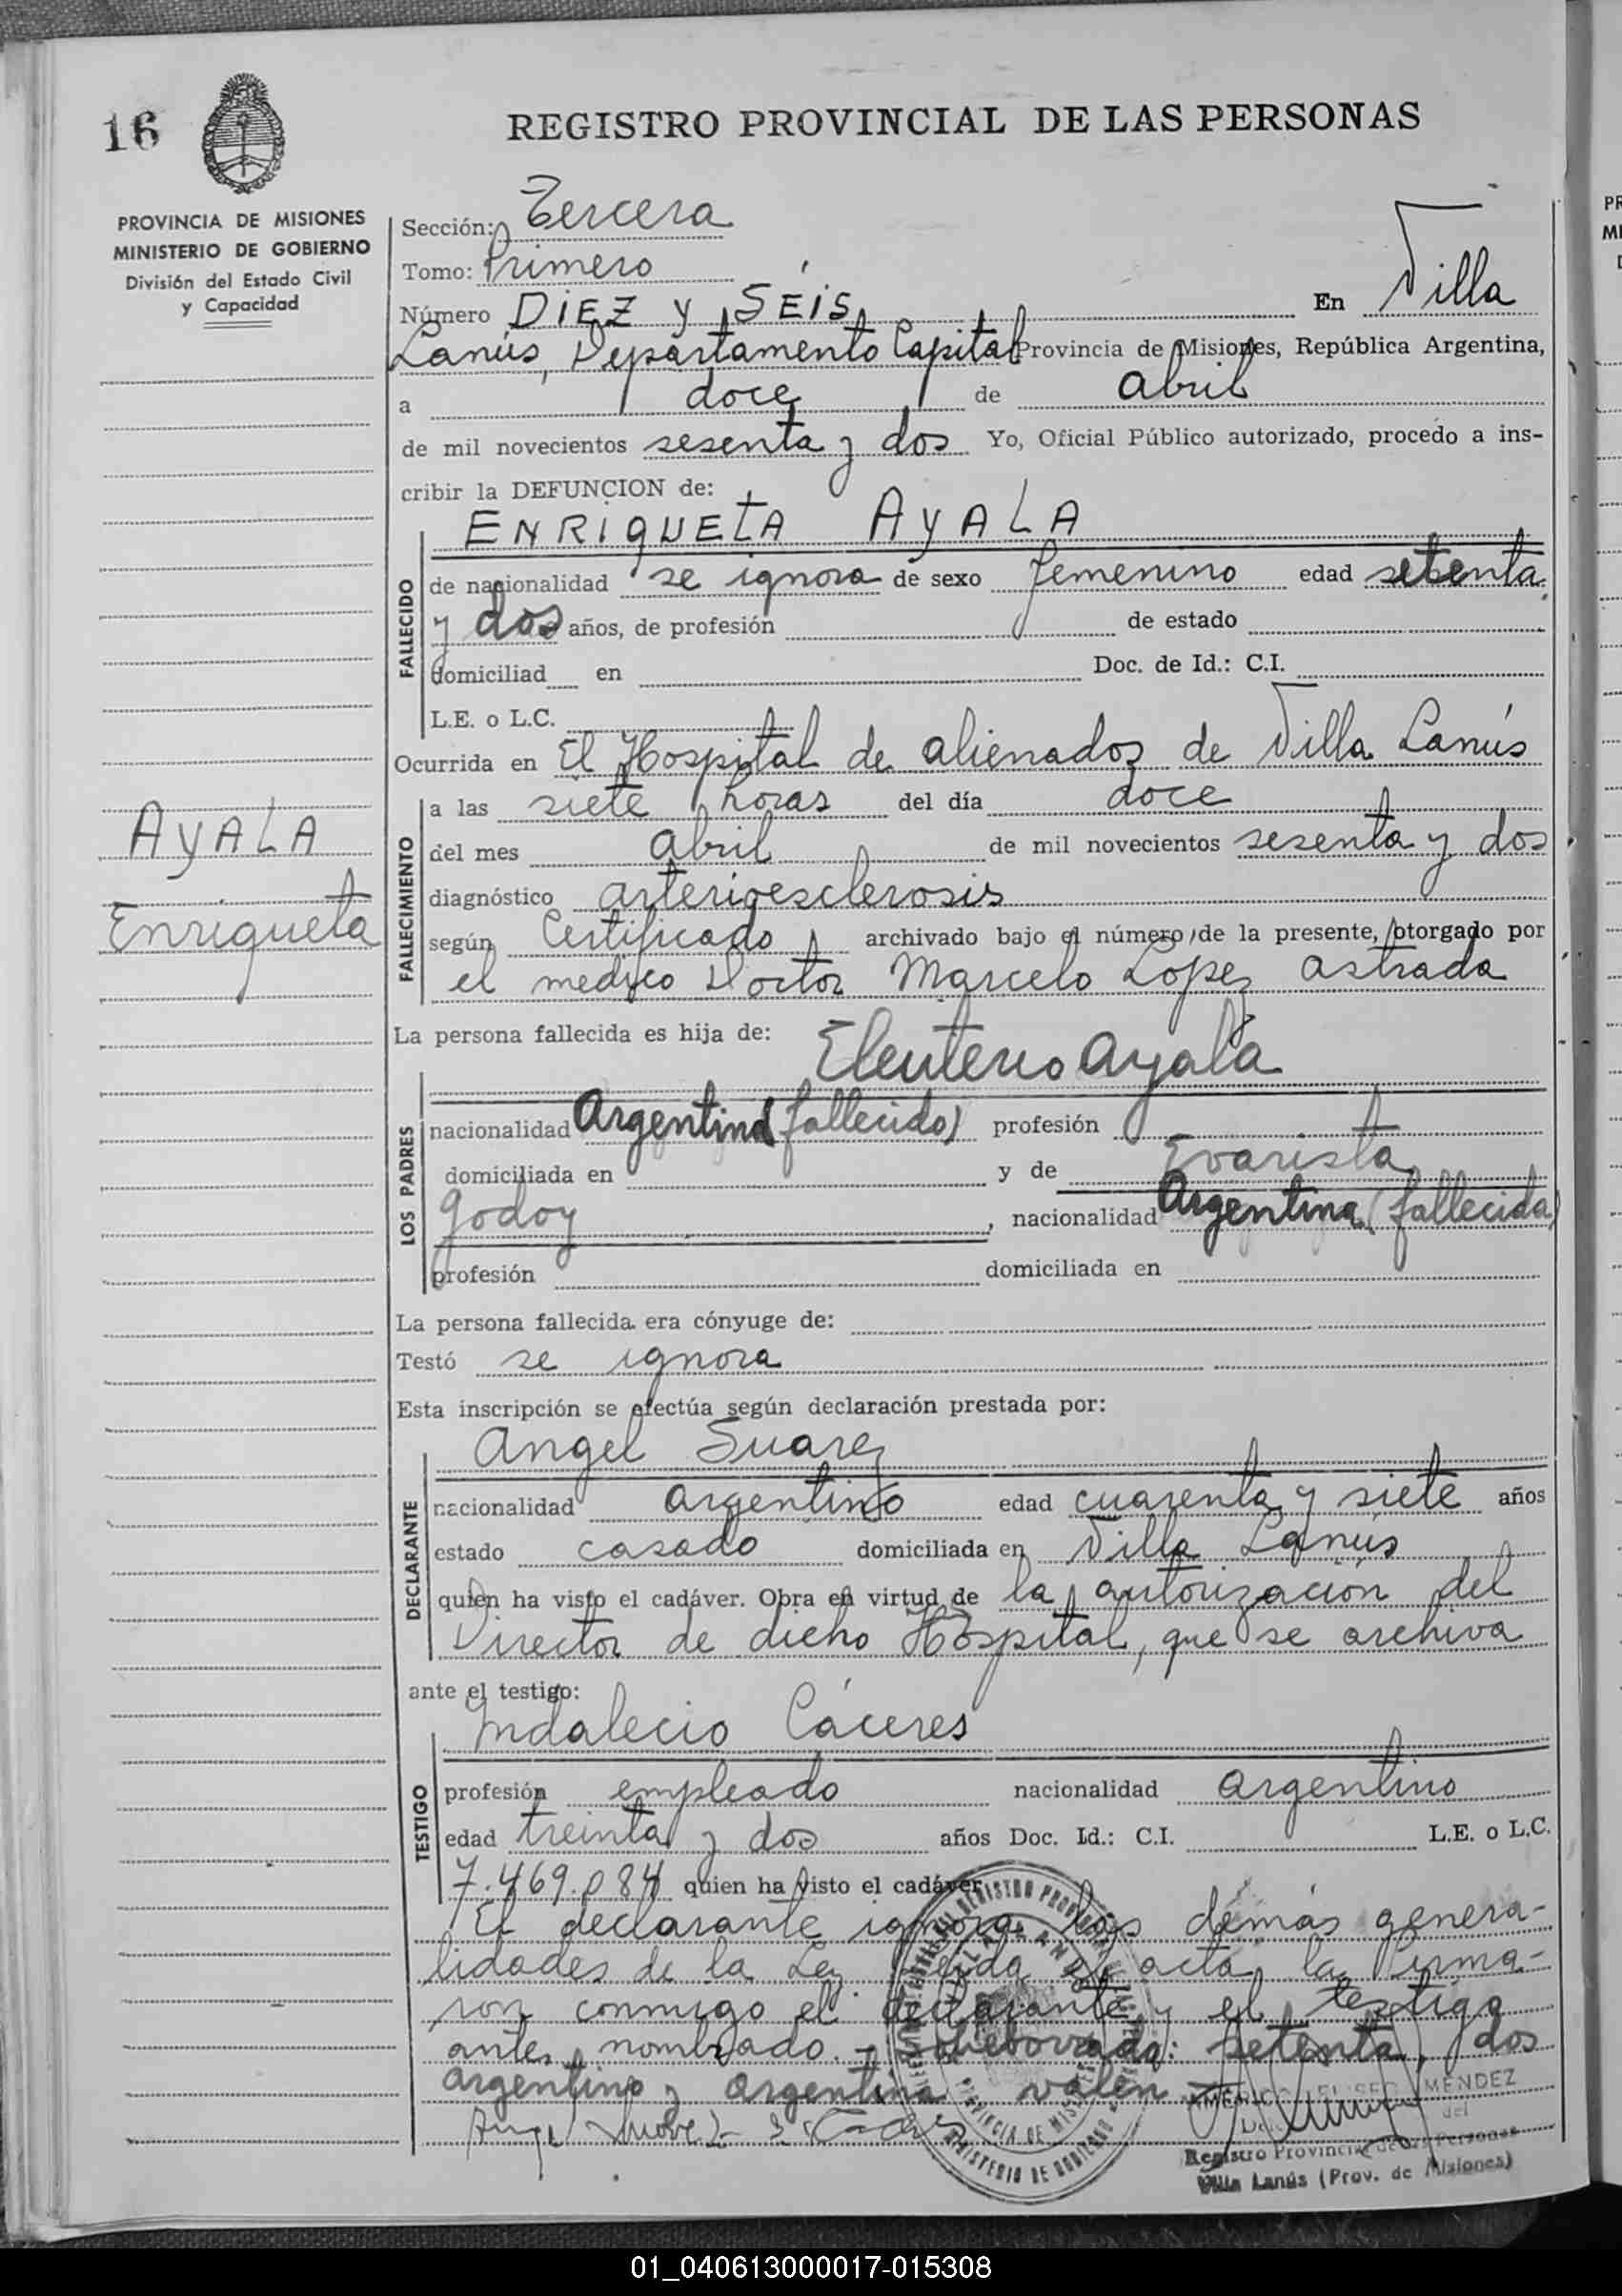 16
REGISTRO PROVINCIAL DE LAS PERSONAS
PROVINCIA DE MISIONES
MINISTERIO DE GOBIERNO
División del Estado Civil
y Capacidad
Sección: Tercera
Tomo: Primero
Número DIEZ Y SEIS En Villa
Lanús, Departamento Capital Provincia de Misiones, República Argentina,
a doce de abril
de mil novecientos sesenta y dos Yo, Oficial Público autorizado, procedo a ins-
cribir la DEFUNCION de:
ENRIQUETA AYALA
FALLECIDO
de nacionalidad se ignora de sexo femenino edad setenta
y dos años, de profesión de estado
domiciliad en Doc. de Id.: C.I.
L.E. o L.C.
Ocurrida en El Hospital de alienados de Villa Lanús
AYALA
Enriqueta
FALLECIMIENTO
a las siete horas del día doce
del mes abril de mil novecientos sesenta y dos
diagnóstico arterioesclerosis
según Certificado archivado bajo el número de la presente, otorgado por
el medico Doctor Marcelo Lopez Astrada
La persona fallecida es hija de: Eleuterio Ayala
LOS PADRES
nacionalidad Argentino (fallecido) profesión
domiciliada en y de Evarista
Godoy, nacionalidad Argentina (fallecida)
profesión domiciliada en
La persona fallecida era cónyuge de:
Testó se ignora
Esta inscripción se efectúa según declaración prestada por:
Angel Suarez
DECLARANTE
nacionalidad argentino edad cuarenta y siete años
estado casado domiciliada en Villa Lanús
quien ha visto el cadáver. Obra en virtud de la autorización del
Director de dicho Hospital, que se archiva
ante el testigo:
Indalecio Cáceres
TESTIGO
profesión empleado nacionalidad argentino
edad treinta y dos años Doc. Id.: C.I. L.E. o L.C.
7.469.084 quien ha visto el cadáver
El declarante ignora las demás genera-
lidades de la Ley. Leida el acta, la firma-
ron conmigo el declarante y el testigo
antes nombrado. - Sobreborrado: setenta, dos
argentino y argentina valen
MÉNDEZ
Registro Provincial de las Personas
Villa Lanús (Prov. de Misiones)
01_040613000017-015308